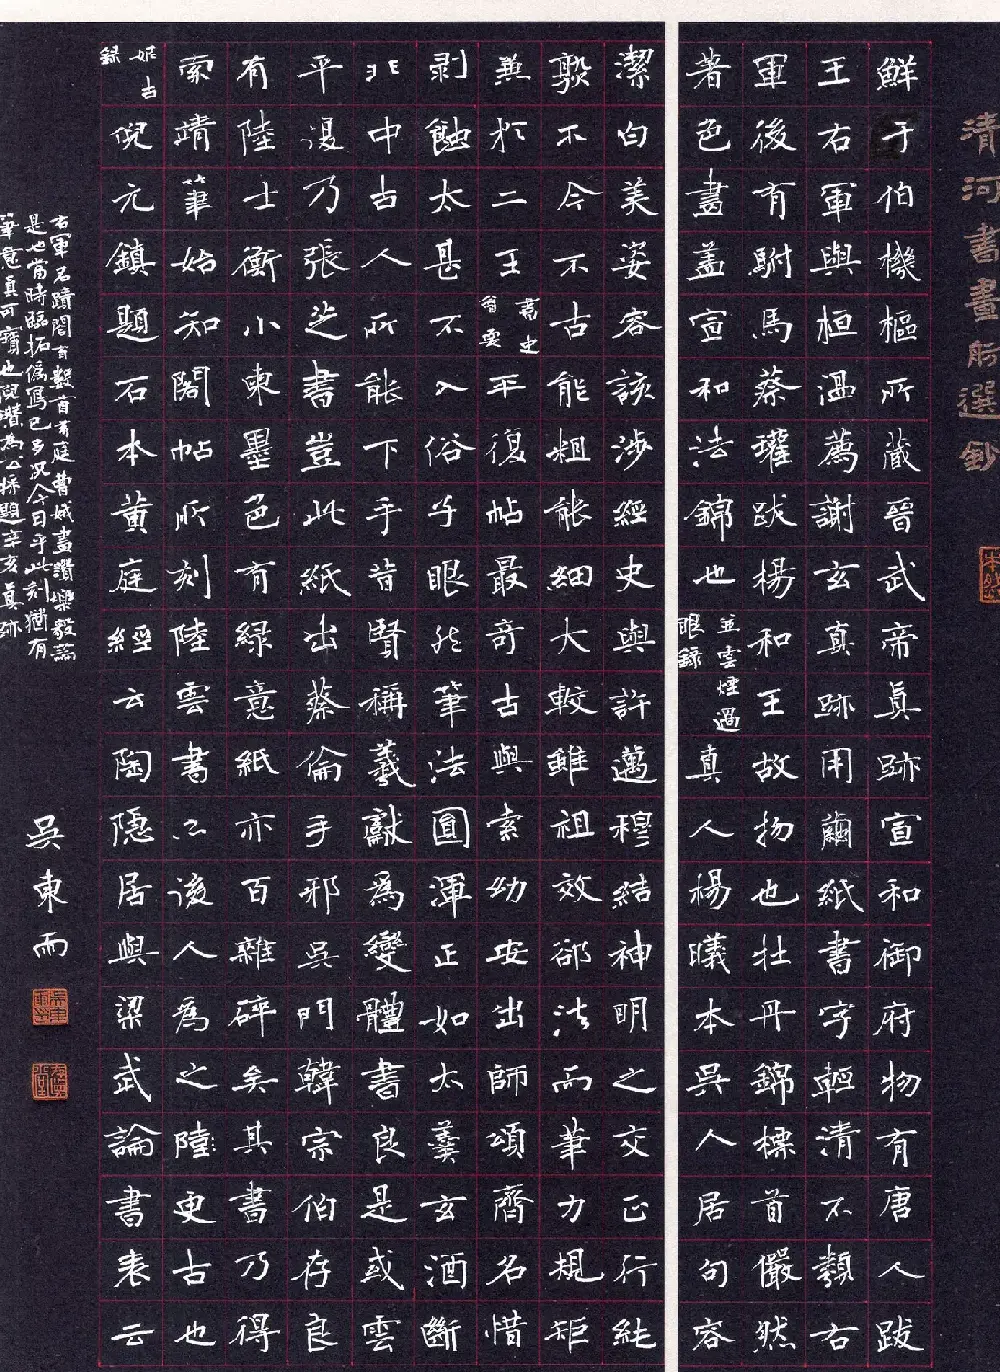 清河書畫舫選鈔
鮮于伯機樞所藏晉武帝真跡宣和御府物有唐人跋
王右軍與桓溫薦謝玄真跡用繭紙書字輕清不類右
軍後有駙馬蔡瓘跋楊和王故物也牡丹錦標首儼然
著色畫蓋宣和法錦也並雲煙過眼錄真人楊曦本吳人居句容
潔白美姿容該涉經史與許邁穆結神明之交正行純
熟不今不古能粗能細大較雖祖效郤法而筆力規矩
兼於二王書史會要平復帖最奇古與索幼安出師頌齊名惜
剥蝕太甚不入俗子眼然筆法圓渾正如太羹玄酒斷
非中古人所能下手昔賢稱羲獻為變體書良是或雲
平復乃張芝書豈此紙出蔡倫手邪吳門韓宗伯存良
有陸士衡小束墨色有綠意紙亦百雜碎矣其書乃得
索靖筆始知閣帖所刻陸雲書亡後人為之陸更古也
妮古錄倪元鎮題石本黃庭經云陶隱居與梁武論書表云
右軍名蹟閣有數首黃庭曹娥畫讚樂毅論
是也當時臨拓偽寫已多況今日乎此刻猶有
筆意真可寶也倪瓚為公採題辛亥真跡
吳東雨